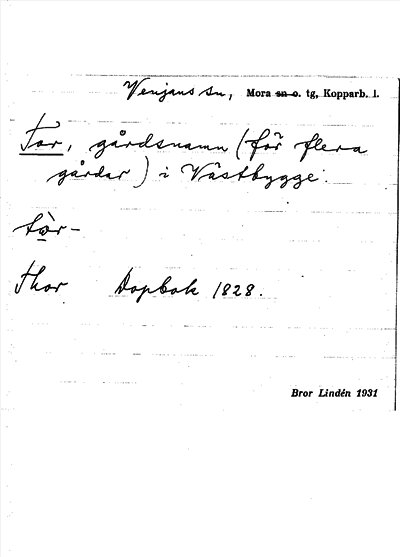 Venjans sn, Mora sn o. tg, Kopparb. l.
Tor, gårdsnamn (för flera
gårdar) i Västbygge.
tòr-
Thor Dopbok 1828.
Bror Lindén 1931